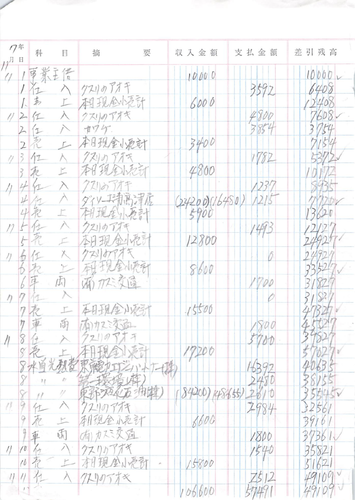 7年 科目 摘要 収入金額 支払金額 差引残高
月 日
11 1 事業主借 10000 10000
1 仕入 クスリのアオキ 3592 6408
1 売上 本日現金小売計 6000 12408
〃 2 仕入 クスリのアオキ 4800 7608
2 仕入 カワグ 3854 3754
2 売上 本日現金小売計 3400 7154
〃 3 仕入 クスリのアオキ 1782 5372
3 売上 本日現金小売計 4800 10172
〃 4 仕入 クスリのアオキ 1237 8935
4 仕入 (24200) (16480) 1215 7720
4 売上 本日現金小売計 5900 13620
〃 5 仕入 クスリのアオキ 1493 12127
5 売上 本日現金小売計 12800 24927
〃 6 仕入 クスリのアオキ 0 24927
6 売上 本日現金小売計 8600 33527
6 車両 (有)カスミ交通 1700 31827
〃 7 仕入 0 31827
7 売上 本日現金小売計 15500 47327
7 車両 (有)カスミ交通 1800 45527
〃 8 仕入 クスリのアオキ 5700 39827
8 売上 本日現金小売計 17200 57027
8 水道光熱費 16392 40635
8 〃 2480 38155
8 〃 (84200) (48655) 2610 35545
〃 9 仕入 クスリのアオキ 2984 32561
9 売上 本日現金小売計 6600 39161
9 車両 (有)カスミ交通 1800 37361
〃 10 仕入 クスリのアオキ 1540 35821
10 売上 本日現金小売計 15800 51621
〃 11 仕入 クスリのアオキ 2512 49109
106600 57491 49109